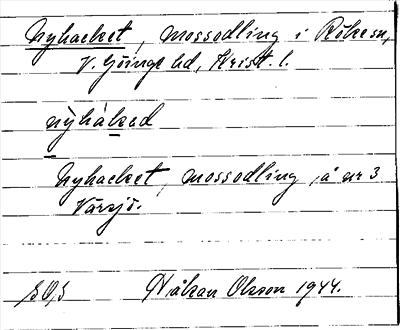 Nyhacket, mossodling i Röke sn,
V. Göinge hd, Krist. l.
nỳháked
Nyhacket, mossodling, å nr 3
Värsjö.
Håkan Olsson 1944.